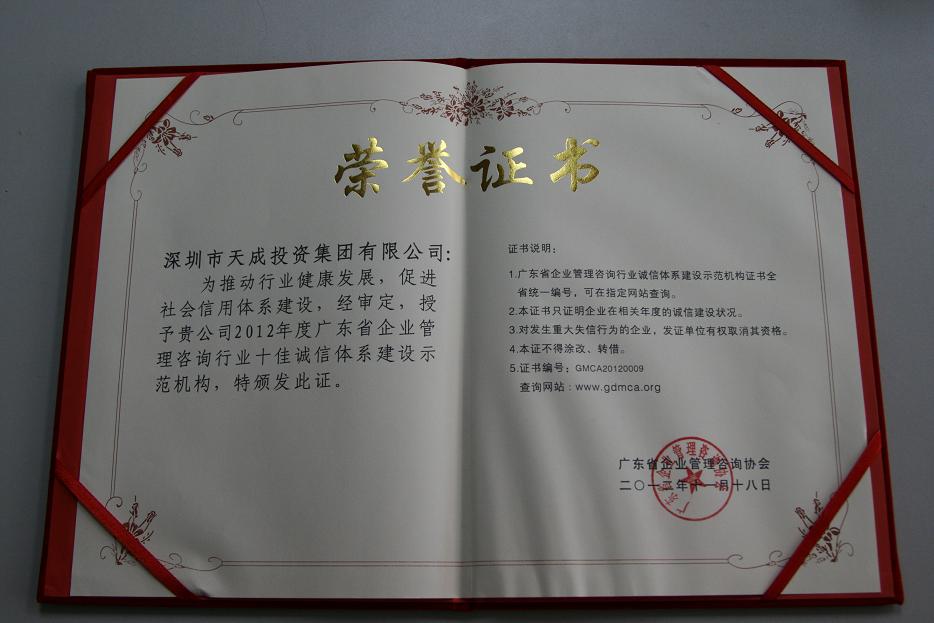 荣誉证书
深圳市天成投资集团有限公司:
为推动行业健康发展，促进
社会信用体系建设，经审定，授
予贵公司2012年度广东省企业管
理咨询行业十佳诚信体系建设示
范机构，特颁发此证。
证书说明:
1.广东省企业管理咨询行业诚信体系建设示范机构证书全
省统一编号，可在指定网站查询。
2.本证书只证明企业在相关年度的诚信建设状况。
3.对发生重大失信行为的企业，发证单位有权取消其资格。
4.本证不得涂改、转借。
5.证书编号: GMCA20120009
查询网站: www.gdmca.org
广东省企业管理咨询协会
二〇一二年十一月十八日
广东省企业管理咨询协会